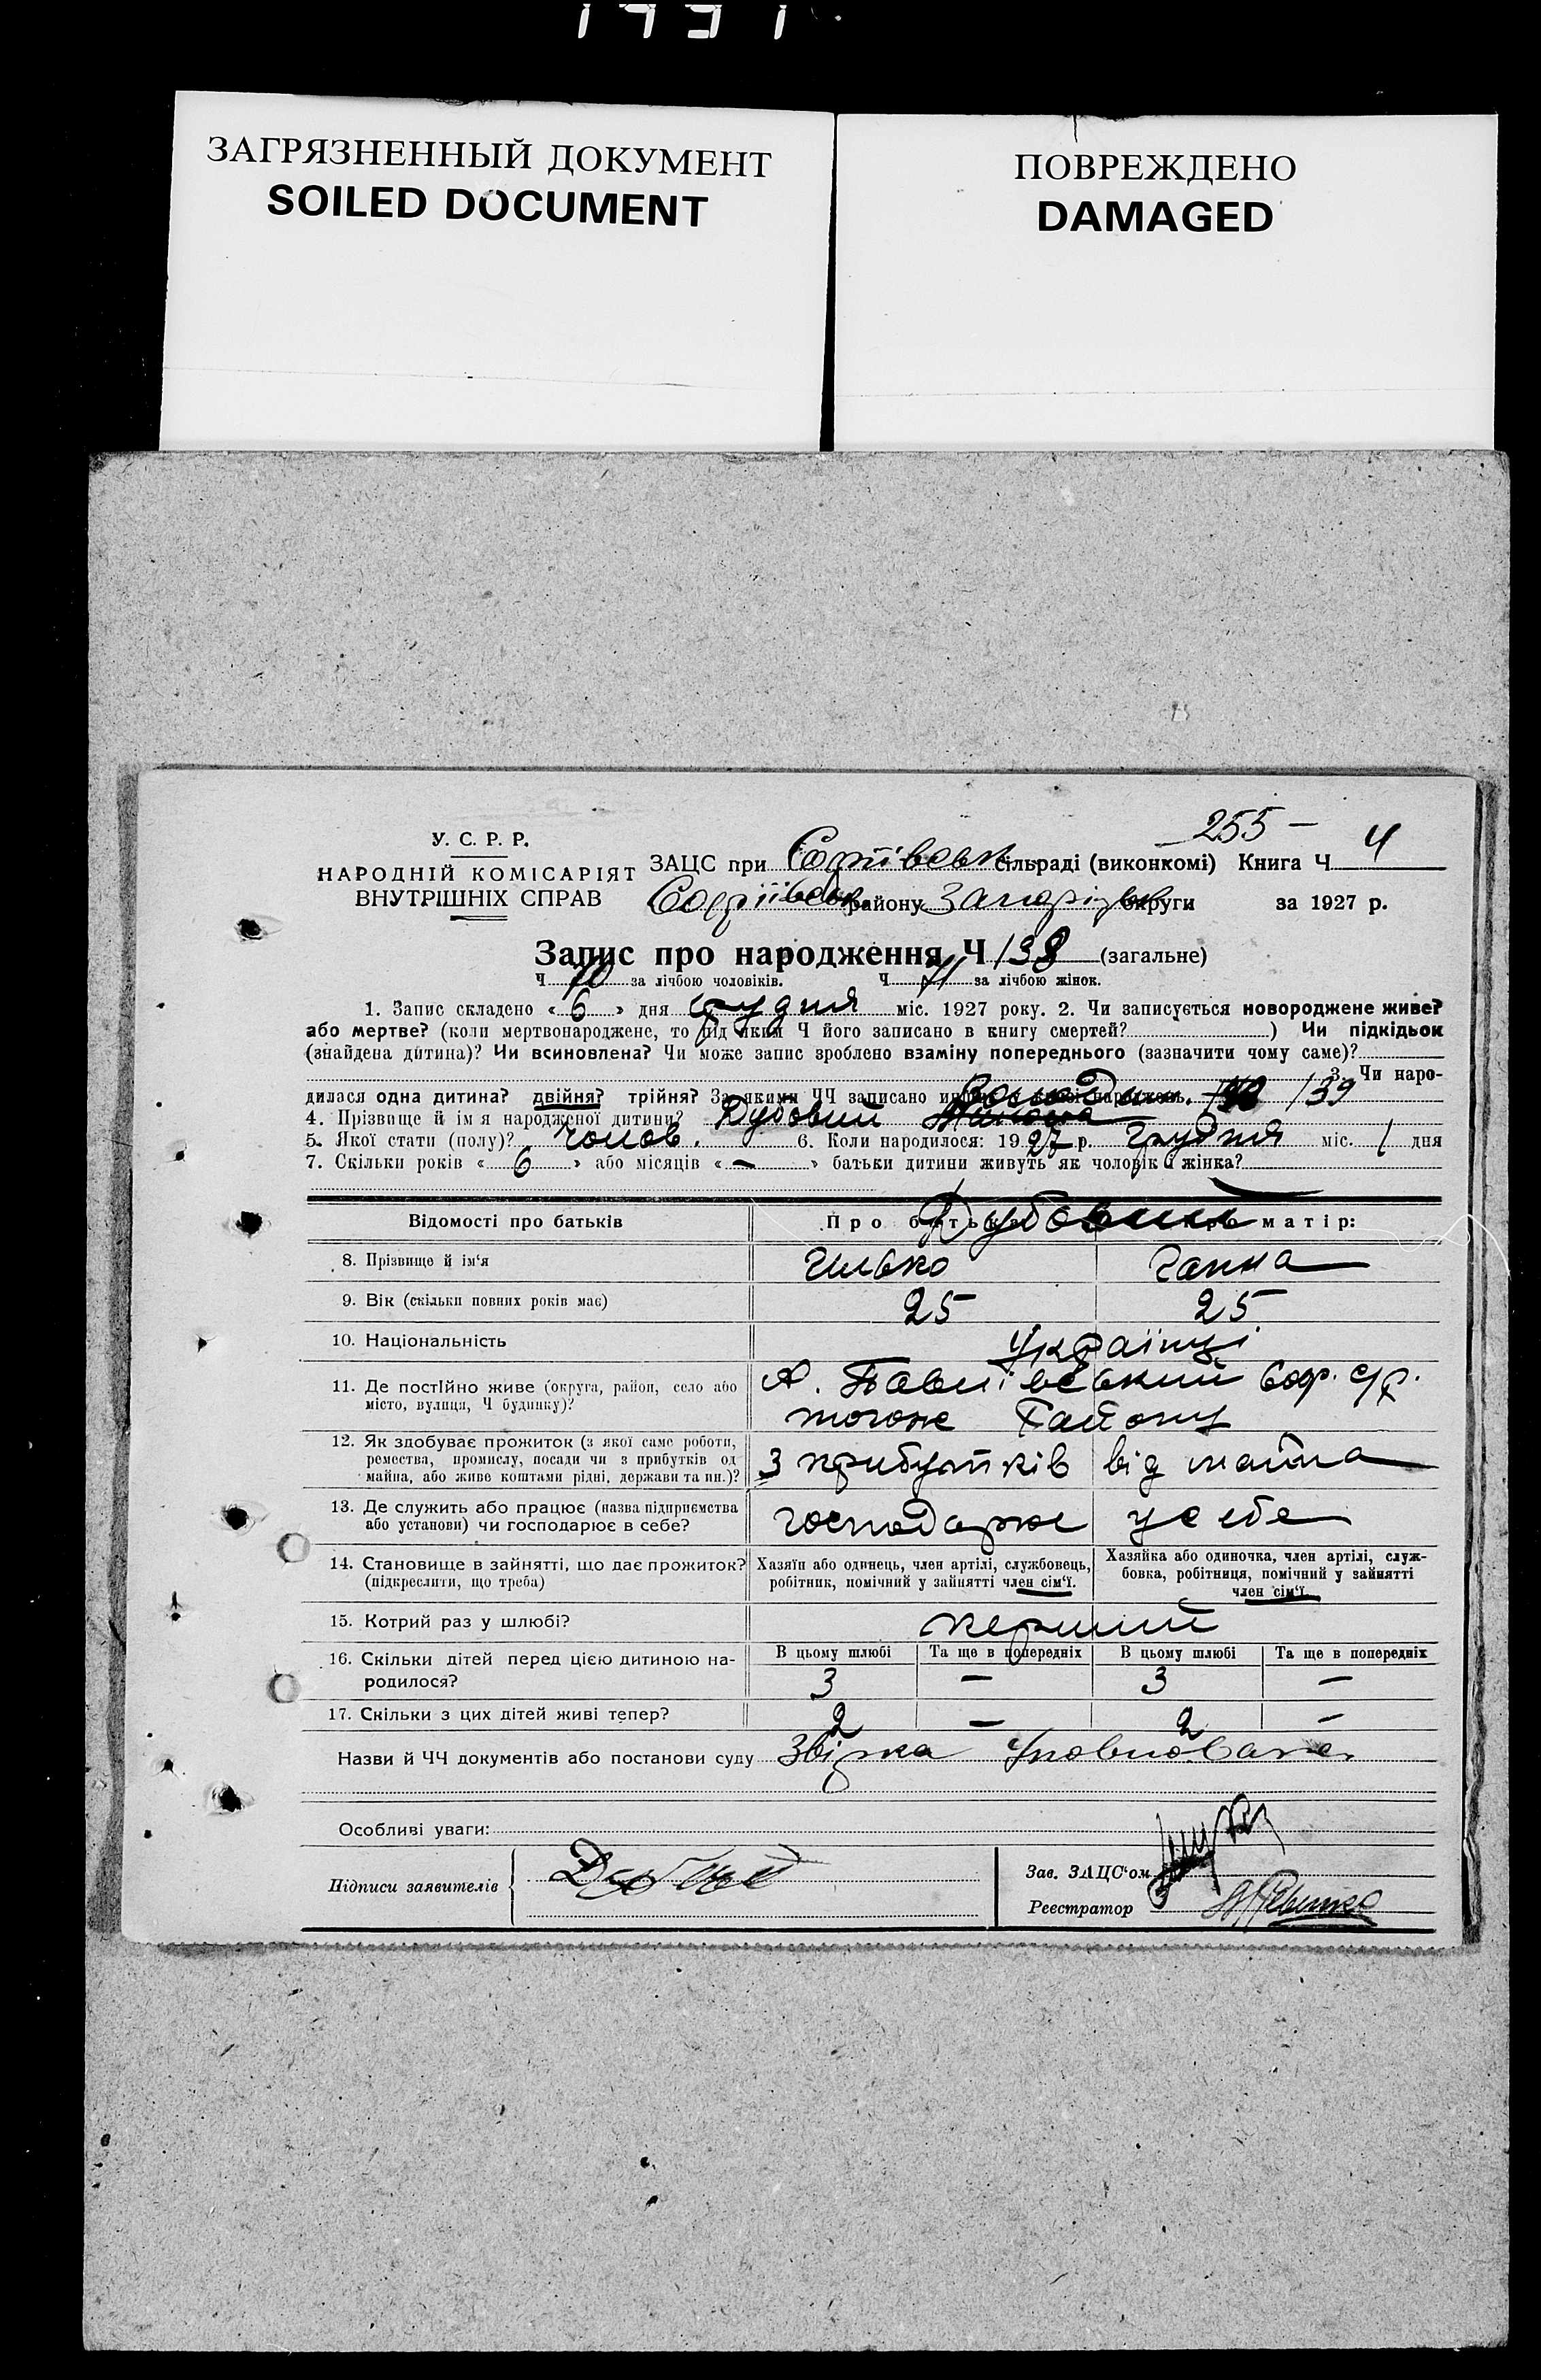 ЗАГРЯЗНЕННЫЙ ДОКУМЕНТ
SOILED DOCUMENT
ПОВРЕЖДЕНО
DAMAGED
255 –
У. С. Р. Р.
НАРОДНІЙ КОМІСАРІЯТ
ВНУТРІШНІХ СПРАВ
ЗАЦС при Софіївськ. сільраді (виконкомі) Книга Ч 4
Софіївськ. району Запорізьк округи за 1927 р.
Запис про народження Ч 138 (загальне)
Ч 70 за лічбою чоловіків. Ч за лічбою жінок.
1. Запис складено «6» дня грудня міс. 1927 року. 2. Чи записується новороджене живе?
або мертве? (коли мертвонароджене, то під яким Ч його записано в книгу смертей? ) Чи підкідьок
(знайдена дитина)? Чи всиновлена? Чи може запис зроблено взаміну попереднього (зазначити чому саме)?
3. Чи наро-
дилася одна дитина? двійня? трійня? За якими ЧЧ записано 139
4. Прізвище й ім я народженої дитини? Дубовий
5. Якої стати (полу)? чолов. 6. Коли народилося: 1927 р. Грудня міс. 1 дня
7. Скільки років «6» або місяців «–» батьки дитини живуть як чоловік й жінка?
Відомості про батьків Про батька матір:
Дубовий
8. Прізвище й ім‘я Ілько Ганна
9. Вік (скільки повних років має) 25 25
10. Національність Українці
11. Де постійно живе (округа, район, село або
місто, вулиця, Ч будинку)? Х. Павлівський Соф. с/р.
того ж Району
12. Як здобуває прожиток (з якої саме роботи,
ремества, промислу, посади чи з прибутків од
майна, або живе коштами рідні, держави та ин.)? З прибутків від майна
13. Де служить або працює (назва підприємства
або установи) чи господарює в себе? господарює у себе
14. Становище в зайнятті, що дає прожиток?
(підкреслити, що треба)
Хазяїн або одинець, член артілі, службовець,
робітник, помічний у зайнятті член сім‘ї.
Хазяйка або одиночка, член артілі, служ-
бовка, робітниця, помічний у зайнятті
член сім‘ї.
15. Котрий раз у шлюбі? перший
16. Скільки дітей перед цією дитиною на-
родилося?
В цьому шлюбі Та ще в попередніх В цьому шлюбі Та ще в попередніх
3 – 3 –
17. Скільки з цих дітей живі тепер? 2 – 2 –
Назви й ЧЧ документів або постанови суду Звірка
Особливі уваги:
Підписи заявителів
Зав. ЗАЦС‘ом
Реєстратор